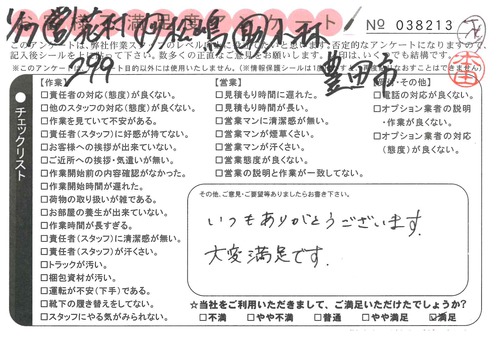 お客様満足度アンケート
No 038213
このアンケートは、弊社作業スタッフのレベル向上に役立てたいと思います。否定的なアンケートになりますので、
記入後シールをはって下さい。数多くの正直なご意見をお願いします。
豊田
チェックリスト
【作業】
□責任者の対応(態度)が良くない。
□他のスタッフの対応(態度)が良くない。
□作業を見ていて不安がある。
□責任者(スタッフ)に好感が持てない。
□お客様への挨拶が出来ていない。
□ご近所への挨拶・気遣いが無い。
□作業開始前の内容確認がなかった。
□作業開始時間が遅れた。
□荷物の取り扱いが雑である。
□お部屋の養生が出来ていない。
□作業時間が長すぎる。
□責任者(スタッフ)に清潔感が無い。
□責任者(スタッフ)が汗くさい。
□トラックが汚い。
□梱包資材が汚い。
□運転が不安(下手)である。
□靴下の履き替えをしてない。
□スタッフにやる気がみられない。
【営業】
□見積もり時間に遅れた。
□見積もり時間が長い。
□営業マンに清潔感が無い。
□営業マンが煙草くさい。
□営業マンが汗くさい。
□営業態度が良くない。
□営業の説明と作業が一致してない。
□電話の対応が良くない。
□オプション業者の説明
・作業が良くない。
□オプション業者の対応
(態度)が良くない。
その他、ご意見・ご要望等ありましたらお書き下さい。
いつもありがとうございます.
大変満足です.
☆当社をご利用いただきまして、ご満足いただけたでしょうか?
□不満 □やや不満 □普通 □やや満足 ☑満足